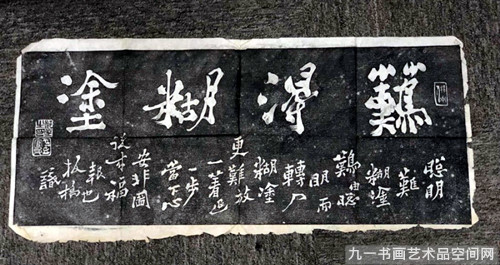 難得糊塗
聰明
難
糊塗
難由聰
明而
轉入
糊塗
更難放
一著退
一步
當下心
安非圖
後來福
報也
板橋
識
九一书画艺术品空间网